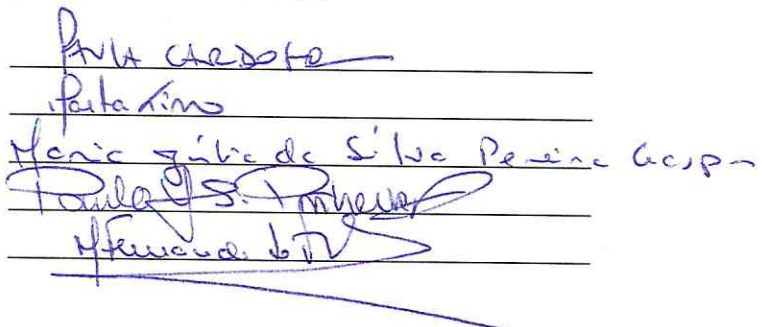 PAULA CARDOSO
Marta Lino
Maria Júlia da Silva Pereira Gaspar
Paula S. Pinheiro
MFernanda